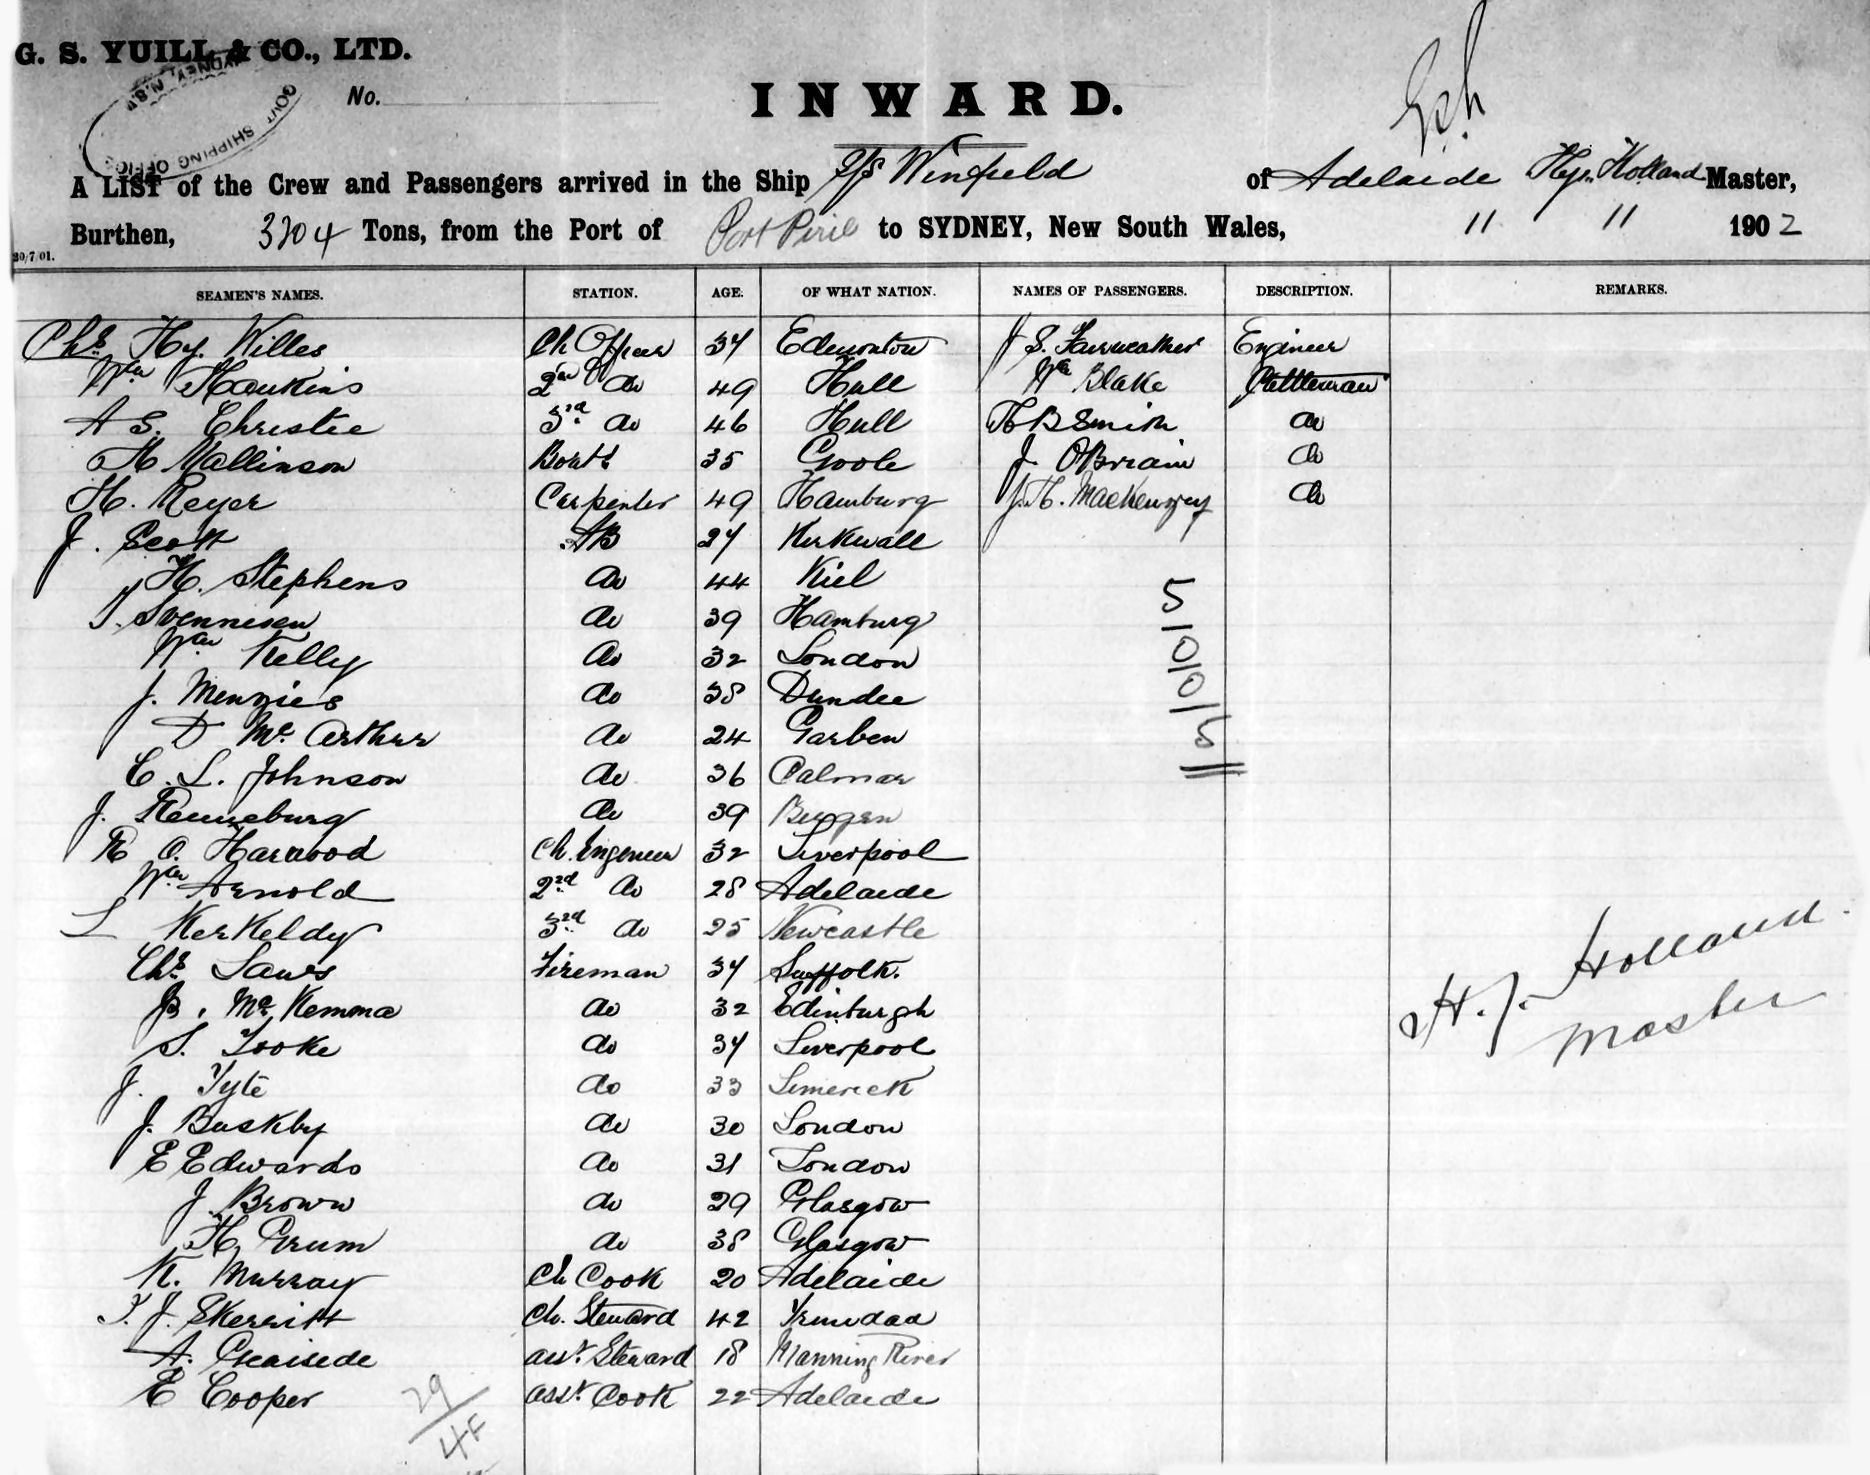 G. S. YUILL & CO., LTD.
SYDNEY, N.S.W.
GOVT SHIPPING OFFICE
No.
INWARD.
A LIST of the Crew and Passengers arrived in the Ship S/S Winfield of Adelaide Hy. Holland Master,
Burthen, 3204 Tons, from the Port of Port Pirie to SYDNEY, New South Wales, 11 11 1902
20/7/01.
SEAMEN'S NAMES. STATION. AGE. OF WHAT NATION. NAMES OF PASSENGERS. DESCRIPTION. REMARKS.
Chs. Hy. Willes Ch Officer 34 Edmonton J S. Fairweather Engineer
Wm Hawkins 2nd do 49 Hull Wm Blake Cattleman
A S. Christie 3rd do 46 Hull H B Smith do
H Mallinson Boats 35 Goole J. O'Briain do
H. Meyer Carpenter 49 Hamburg J. H. MacKenzey do
J. Scott AB 24 Kirkwall
H. Stephens do 44 Kiel
J. Svennesen do 39 Hamburg
Wm Kelly do 32 London
J. Menzies do 38 Dundee
D Mc. Arthur do 24 Garben
C. L. Johnson do 36 Calmar
J. Renneburg do 39 Bergen
R O. Harwood Ch. Engineer 32 Liverpool
Wm Arnold 2nd do 28 Adelaide
L Kerkeldy 3rd do 25 Newcastle
Chs. Laws Fireman 34 Suffolk.
B. Mc Kemma do 32 Edinburgh
S. Tooke do 34 Liverpool
J. Tyte do 33 Limerick
J. Buskby do 30 London
E Edwards do 31 London
J Brown do 29 Glasgow
H Crum do 38 Glasgow
K. Murray Ch Cook 20 Adelaide
T. J. Skerritt Ch. Steward 42 Trinidad
A. Cheaisede asst. Steward 18 Manning River
E Cooper asst. Cook 22 Adelaide
H. J. Holland
Master
29